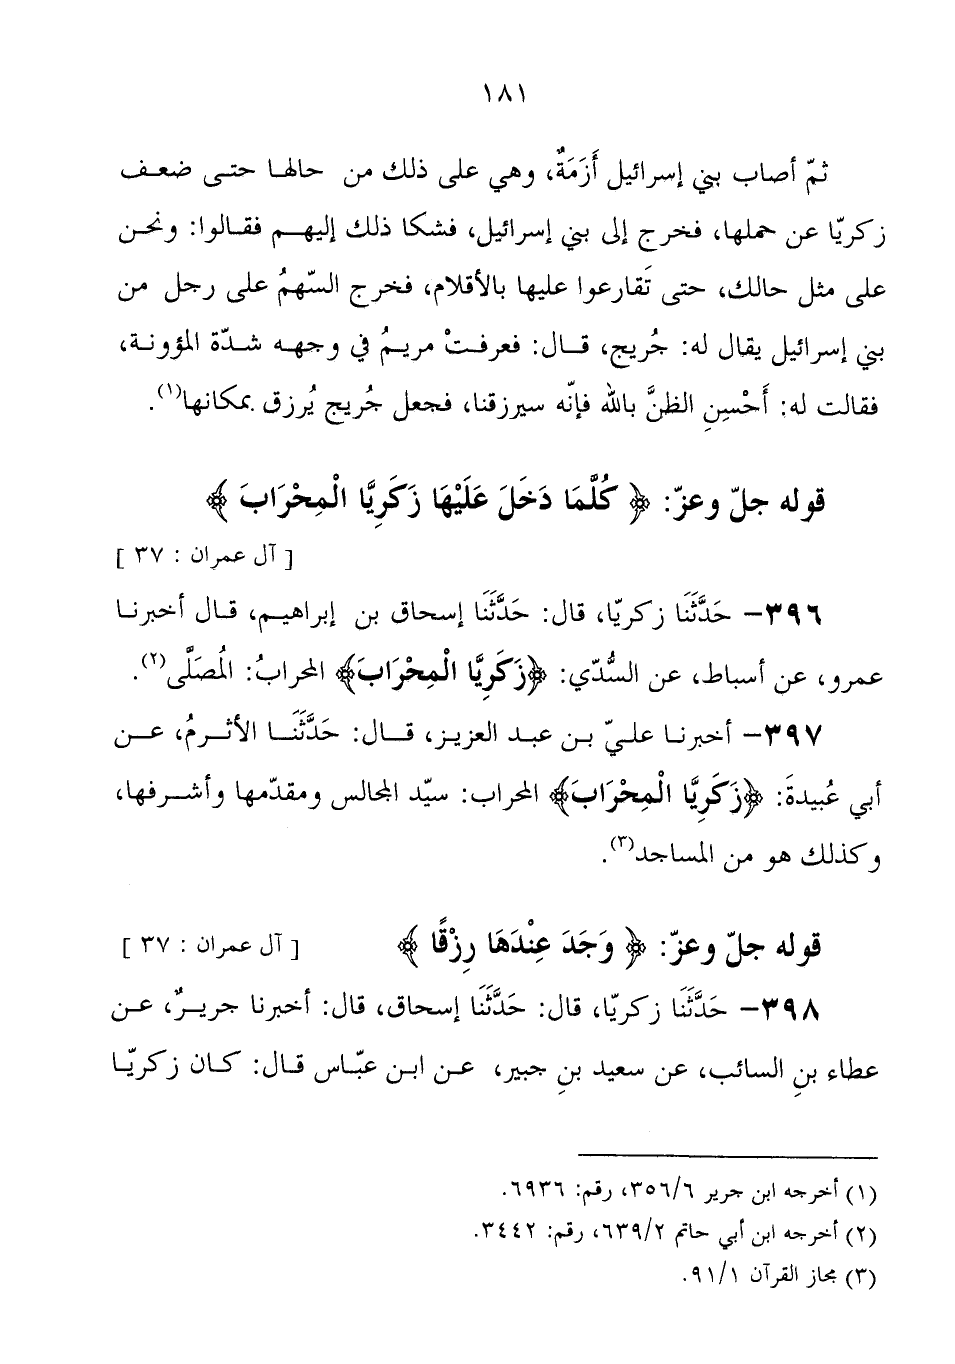 ١٨١
ثمّ أصاب بني إسرائيل أَزَمَةٌ، وهي على ذلك من حالها حتى ضعف
زكريّا عن حملها، فخرج إلى بني إسرائيل، فشكا ذلك إليهم فقالوا: ونحن
على مثل حالك، حتى تَقارعوا عليها بالأقلام، فخرج السّهمُ على رجل من
بني إسرائيل يقال له: جُريج، قال: فعرفتْ مريمُ في وجهه شدّة المؤونة،
فقالت له: أَحْسِنِ الظنَّ بالله فإنّه سيرزقنا، فجعل جُريج يُرزق بمكانها(١).
قوله جلّ وعزّ: ﴿ كُلَّمَا دَخَلَ عَلَيْهَا زَكَرِيَّا الْمِحْرَابَ ﴾
[ آل عمران : ٣٧ ]
٣٩٦- حَدَّثَنَا زكريّا، قال: حَدَّثَنَا إسحاق بن إبراهيم، قال أخبرنا
عمرو، عن أسباط، عن السُّدّي: ﴿زَكَرِيَّا الْمِحْرَابَ﴾ المحرابُ: المُصَلَّى(٢).
٣٩٧- أخبرنا عليّ بن عبد العزيز، قال: حَدَّثَنَا الأثرمُ، عن
أبي عُبيدةَ: ﴿زَكَرِيَّا الْمِحْرَابَ﴾ المحراب: سيّد المجالس ومقدّمها وأشرفها،
وكذلك هو من المساجد(٣).
قوله جلّ وعزّ: ﴿ وَجَدَ عِنْدَهَا رِزْقًا ﴾ [ آل عمران : ٣٧ ]
٣٩٨- حَدَّثَنَا زكريّا، قال: حَدَّثَنَا إسحاق، قال: أخبرنا جريرٌ، عن
عطاء بنِ السائب، عن سعيد بنِ جبير، عن ابن عبّاس قال: كان زكريّا
(١) أخرجه ابن جرير ٣٥٦/٦، رقم: ٦٩٣٦.
(٢) أخرجه ابن أبي حاتم ٦٣٩/٢، رقم: ٣٤٤٢.
(٣) مجاز القرآن ٩١/١.